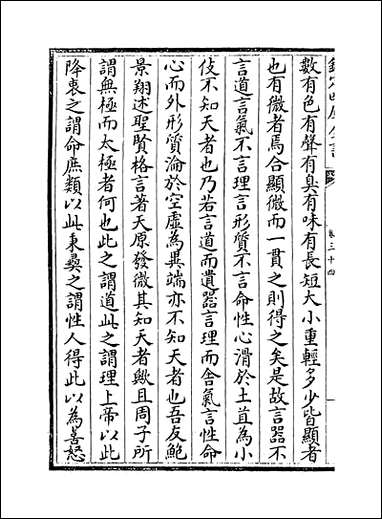 欽定四庫全書
卷三十四
數有色有聲有臭有味有長短大小重輕多少皆顯者
也有微者焉合顯微而一貫之則得之矣是故言器不
言道言氣不言理言形質不言命性心滑於土苴為小
伎不知天者也乃若言道而遺器言理而舍氣言性命
心而外形質淪於空虛為異端亦不知天者也吾友鮑
景翔述聖賢格言著天原發微其知天者歟且周子所
謂無極而太極者何也此之謂道此之謂理上帝以此
降衷之謂命庶類以此秉彝之謂性人得此以為善怒